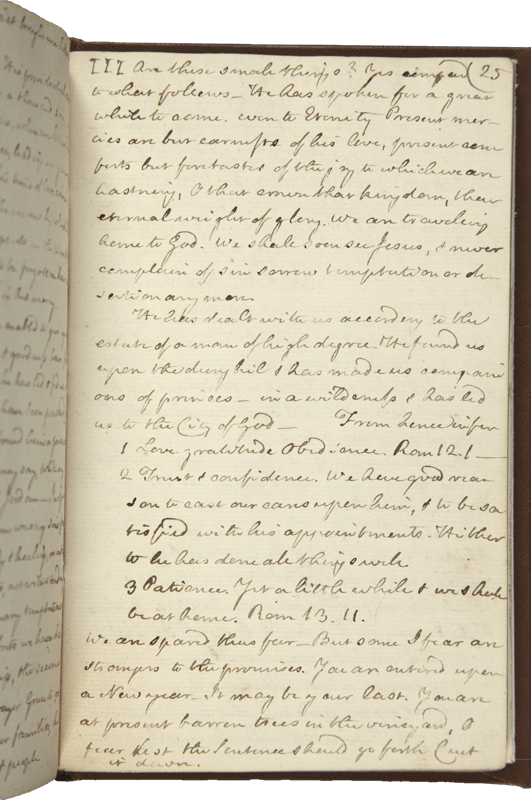 III Are these small things? Yes compared (25
to what follows – He has spoken for a great
while to come. even to Eternity Present mer-
cies are but earnests of his love, present com
forts but foretastes of the joy to which we are
hastning, O that crown that kingdom, that
eternal weight of glory. We are traveling
home to God. We shall soon see Jesus, & never
complain of sin sorrow temptation or de-
sertion any more
He has dealt with us according to the
estate of a man of high degree. He found us
upon the dunghil & has made us compani
ons of princes – in a wilderness & has led
us to the City of God – From hence infer
1 Love gratitude Obedience. Rom 12.1 –
2 Trust & confidence. We have good rea-
son to cast our cares upon him, & to be sa
tisfied with his appointments. Hither
to he has done all things well
3 Patience. Yet a little while & we shall
be at home. Rom 13.11.
We are spared thus far – But some I fear are
strangers to the promises. You are entered upon
a New year – It may be your last. You are
at present barren trees in the vineyard, O
fear lest the Sentence should go forth Cut
it down.